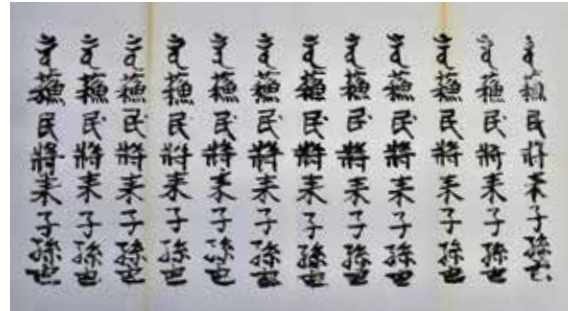 蘓民將来子孫也
蘓民將来子孫也
蘓民將来子孫也
蘓民將来子孫也
蘓民將来子孫也
蘓民將来子孫也
蘓民將来子孫也
蘓民將来子孫也
蘓民將来子孫也
蘓民將来子孫也
蘓民將来子孫也
蘓民將来子孫也